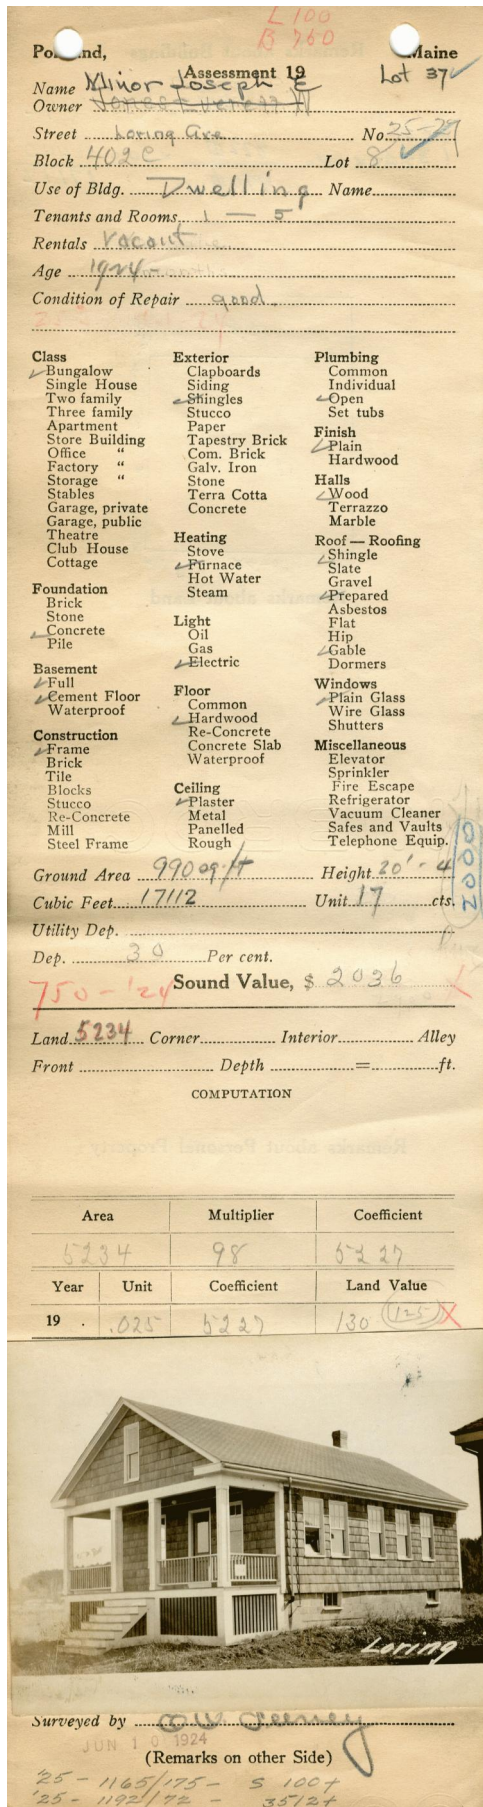 L 100
B 760
Portland, Maine
Assessment 19
Lot 37
Name Minor Joseph E
Owner Jones Everett W
Street Loring Ave No. 25-27
Block 402 C Lot 8
Use of Bldg. Dwelling Name
Tenants and Rooms 1 — 5
Rentals Vacant
Age 1924-
Condition of Repair good.
Class
Bungalow
Single House
Two family
Three family
Apartment
Store Building
Office "
Factory "
Storage "
Stables
Garage, private
Garage, public
Theatre
Club House
Cottage
Foundation
Brick
Stone
Concrete
Pile
Basement
Full
Cement Floor
Waterproof
Construction
Frame
Brick
Tile
Blocks
Stucco
Re-Concrete
Mill
Steel Frame
Exterior
Clapboards
Siding
Shingles
Stucco
Paper
Tapestry Brick
Com. Brick
Galv. Iron
Stone
Terra Cotta
Concrete
Heating
Stove
Furnace
Hot Water
Steam
Light
Oil
Gas
Electric
Floor
Common
Hardwood
Re-Concrete
Concrete Slab
Waterproof
Ceiling
Plaster
Metal
Panelled
Rough
Plumbing
Common
Individual
Open
Set tubs
Finish
Plain
Hardwood
Halls
Wood
Terrazzo
Marble
Roof — Roofing
Shingle
Slate
Gravel
Prepared
Asbestos
Flat
Hip
Gable
Dormers
Windows
Plain Glass
Wire Glass
Shutters
Miscellaneous
Elevator
Sprinkler
Fire Escape
Refrigerator
Vacuum Cleaner
Safes and Vaults
Telephone Equip.
2000
Ground Area 990 sq ft Height 20'-4
Cubic Feet 17112 Unit 17 cts.
Utility Dep.
Dep. 30 Per cent.
750-'24 Sound Value, $ 2036
Land 5234 Corner Interior Alley
Front Depth = ft.
COMPUTATION
Area Multiplier Coefficient
5234 98 5227
Year Unit Coefficient Land Value
19 . .025 5227 130 125 X
Loring
Surveyed by
JUN 10 1924
(Remarks on other Side)
'25 - 1165/175 - S 100+
'25 - 1192/72 - 3512+